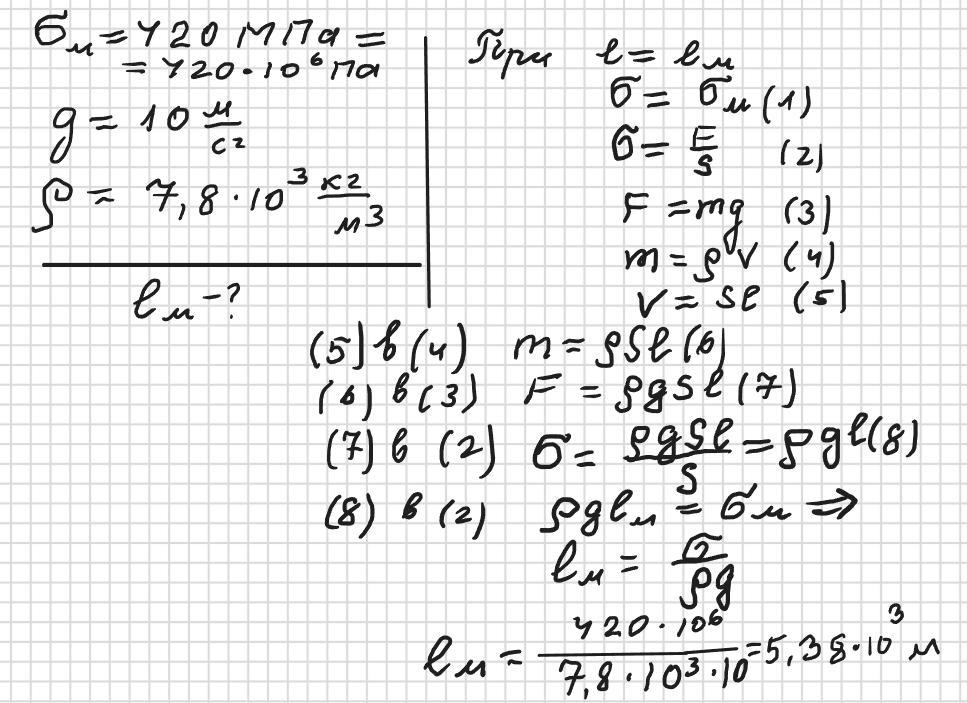 σм = 420 МПа =
= 420·10⁶ Па
g = 10 м/с²
ρ = 7,8·10³ кг/м³
lм - ?
При l = lм
σ = σм (1)
σ = F/S (2)
F = mg (3)
m = ρV (4)
V = Sl (5)
(5) в (4) m = ρSl (6)
(6) в (3) F = ρgSl (7)
(7) в (2) σ = ρgSl/S = ρgl (8)
(8) в (2) ρglм = σм ⇒
lм = σ/ρg
lм = 420·10⁶/7,8·10³·10 = 5,38·10³ м